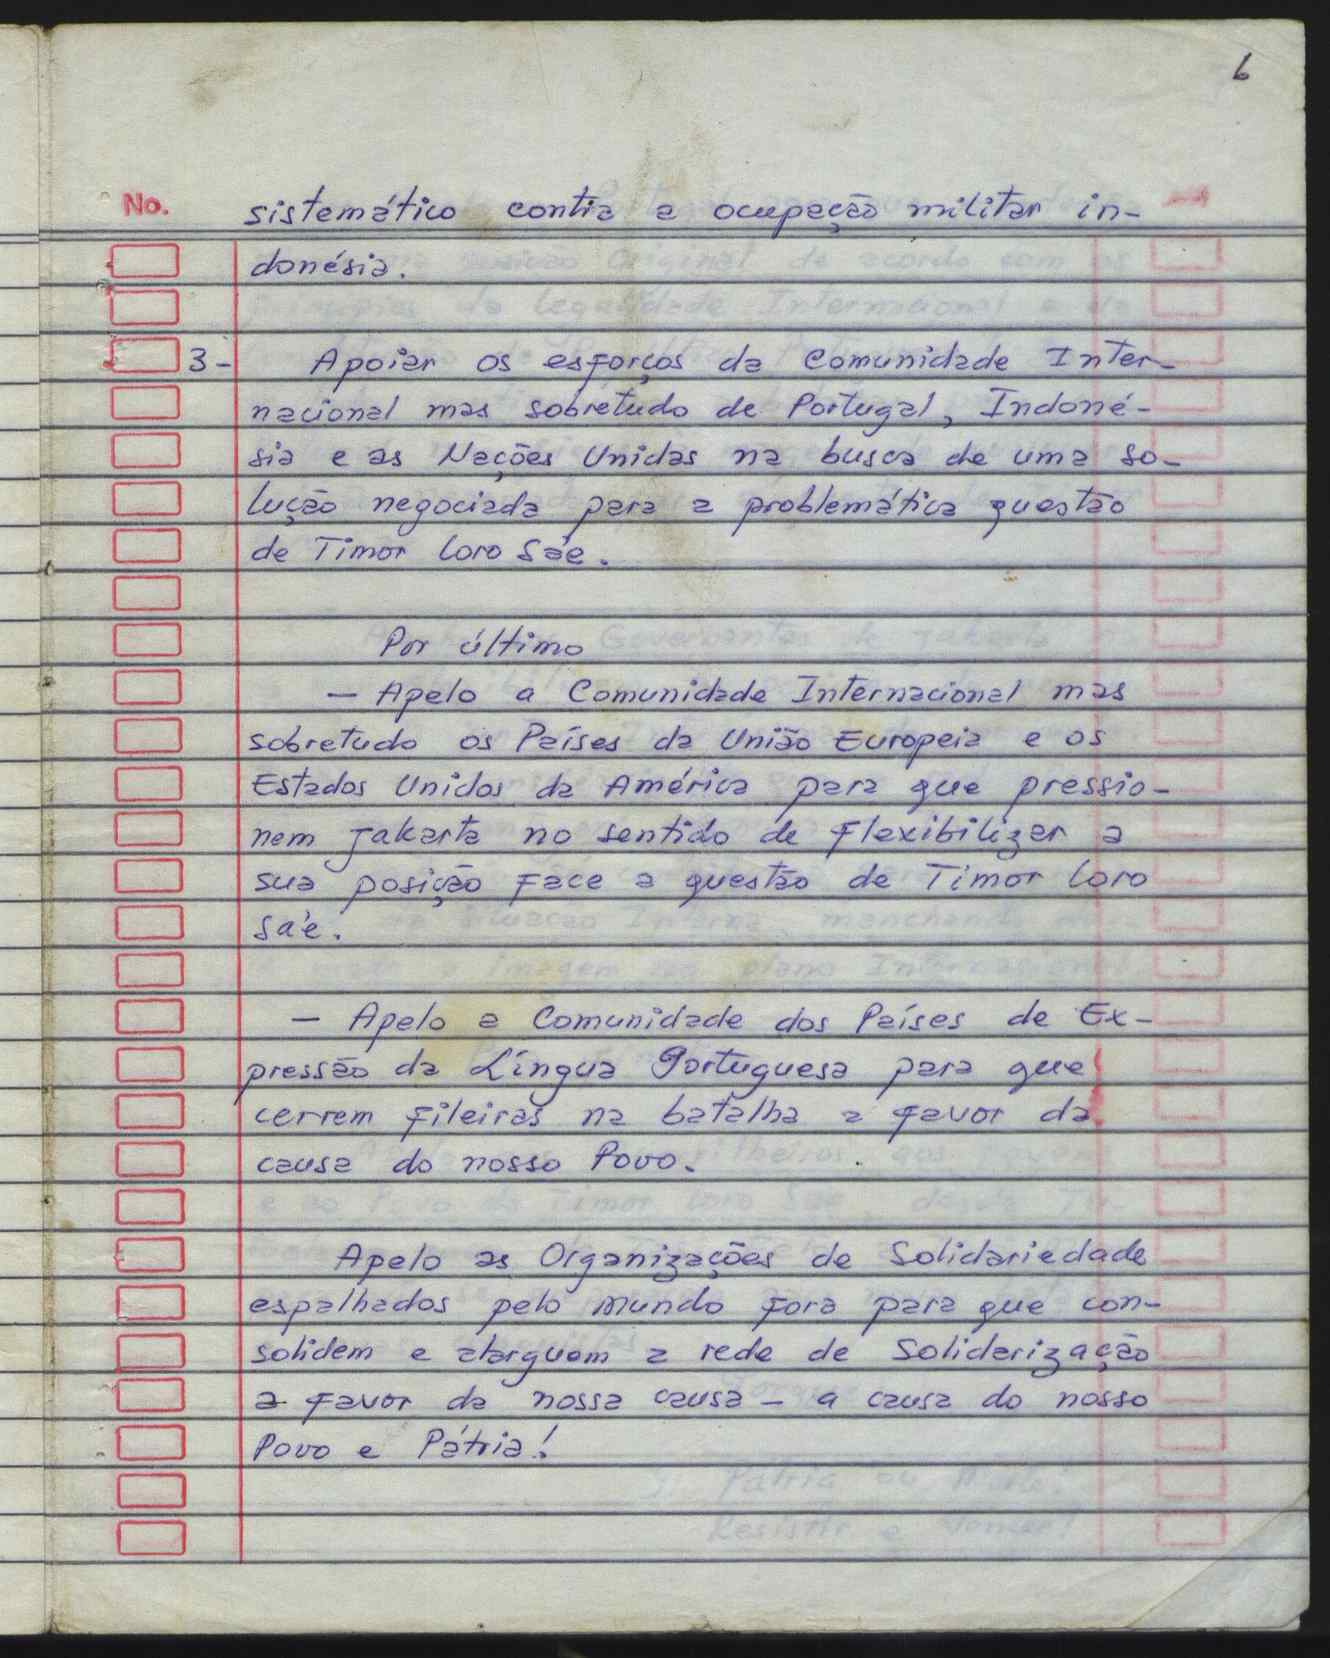 6
No.
sistemático contra a ocupação militar in-
donésia.
3- Apoiar os esforços da Comunidade Inter-
nacional mas sobretudo de Portugal, Indoné-
sia e as Nações Unidas na busca de uma so-
lução negociada para a problemática questão
de Timor Loro Sa'e.
Por último
- Apelo a Comunidade Internacional mas
sobretudo os Países da União Europeia e os
Estados Unidos da América para que pressio-
nem Jakarta no sentido de flexibilizar a
sua posição face a questão de Timor Loro
Sa'e.
- Apelo a Comunidade dos Países de Ex-
pressão da Língua Portuguesa para que
cerrem fileiras na batalha a favor da
causa do nosso Povo.
Apelo as Organizações de Solidariedade
espalhados pelo mundo fora para que con-
solidem e alarguem a rede de Solidarização
a favor da nossa causa - a causa do nosso
Povo e Pátria!